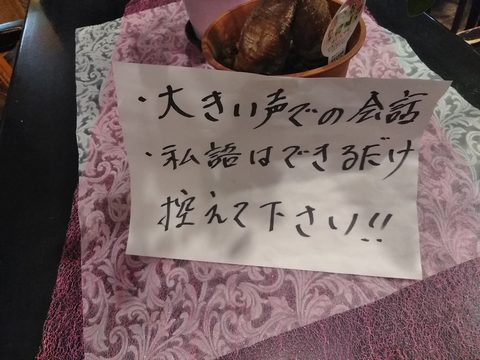 ・大きい声での会話
・私語はできるだけ
控えて下さい!!